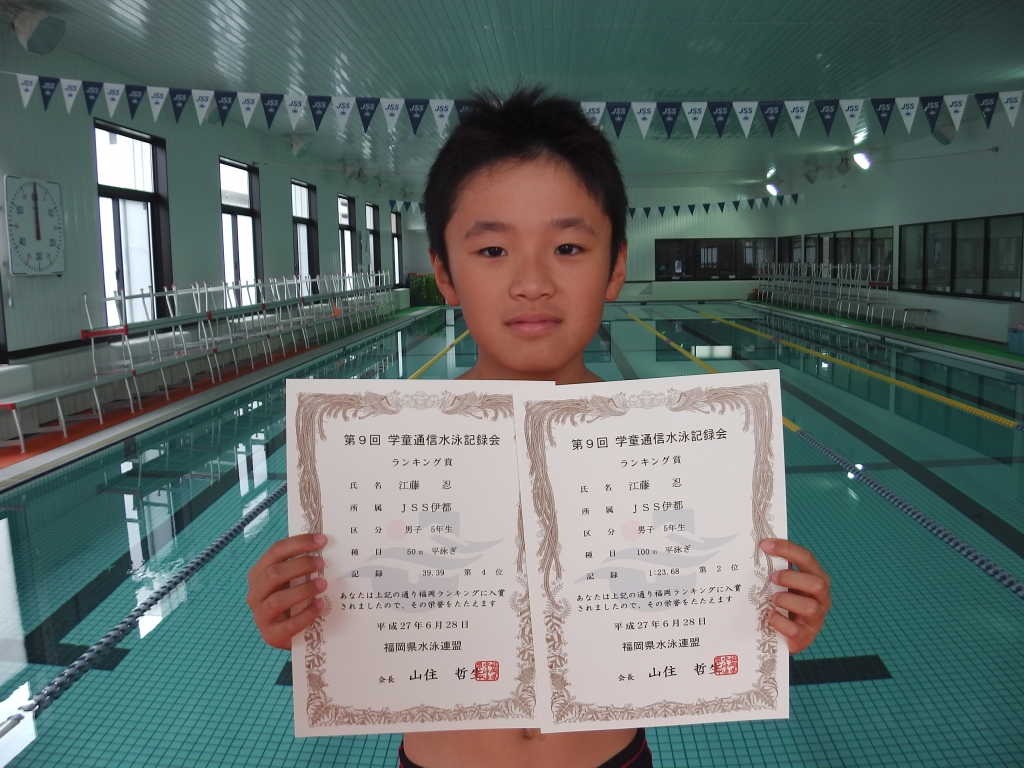 JSS JSS JSS JSS JSS JSS JSS JSS JSS
第9回 学童通信水泳記録会
ランキング賞
氏 名 江藤 忍
所 属 JSS伊都
区 分 男子 5年生
種 目 50m 平泳ぎ
記 録 39.39 第 4 位
あなたは上記の通り福岡ランキングに入賞
されましたので、その栄誉をたたえます
平成27年6月28日
福岡県水泳連盟
会長 山住 哲生
第9回 学童通信水泳記録会
ランキング賞
氏 名 江藤 忍
所 属 JSS伊都
区 分 男子 5年生
種 目 100m 平泳ぎ
記 録 1:23.68 第 2 位
あなたは上記の通り福岡ランキングに入賞
されましたので、その栄誉をたたえます
平成27年6月28日
福岡県水泳連盟
会長 山住 哲生